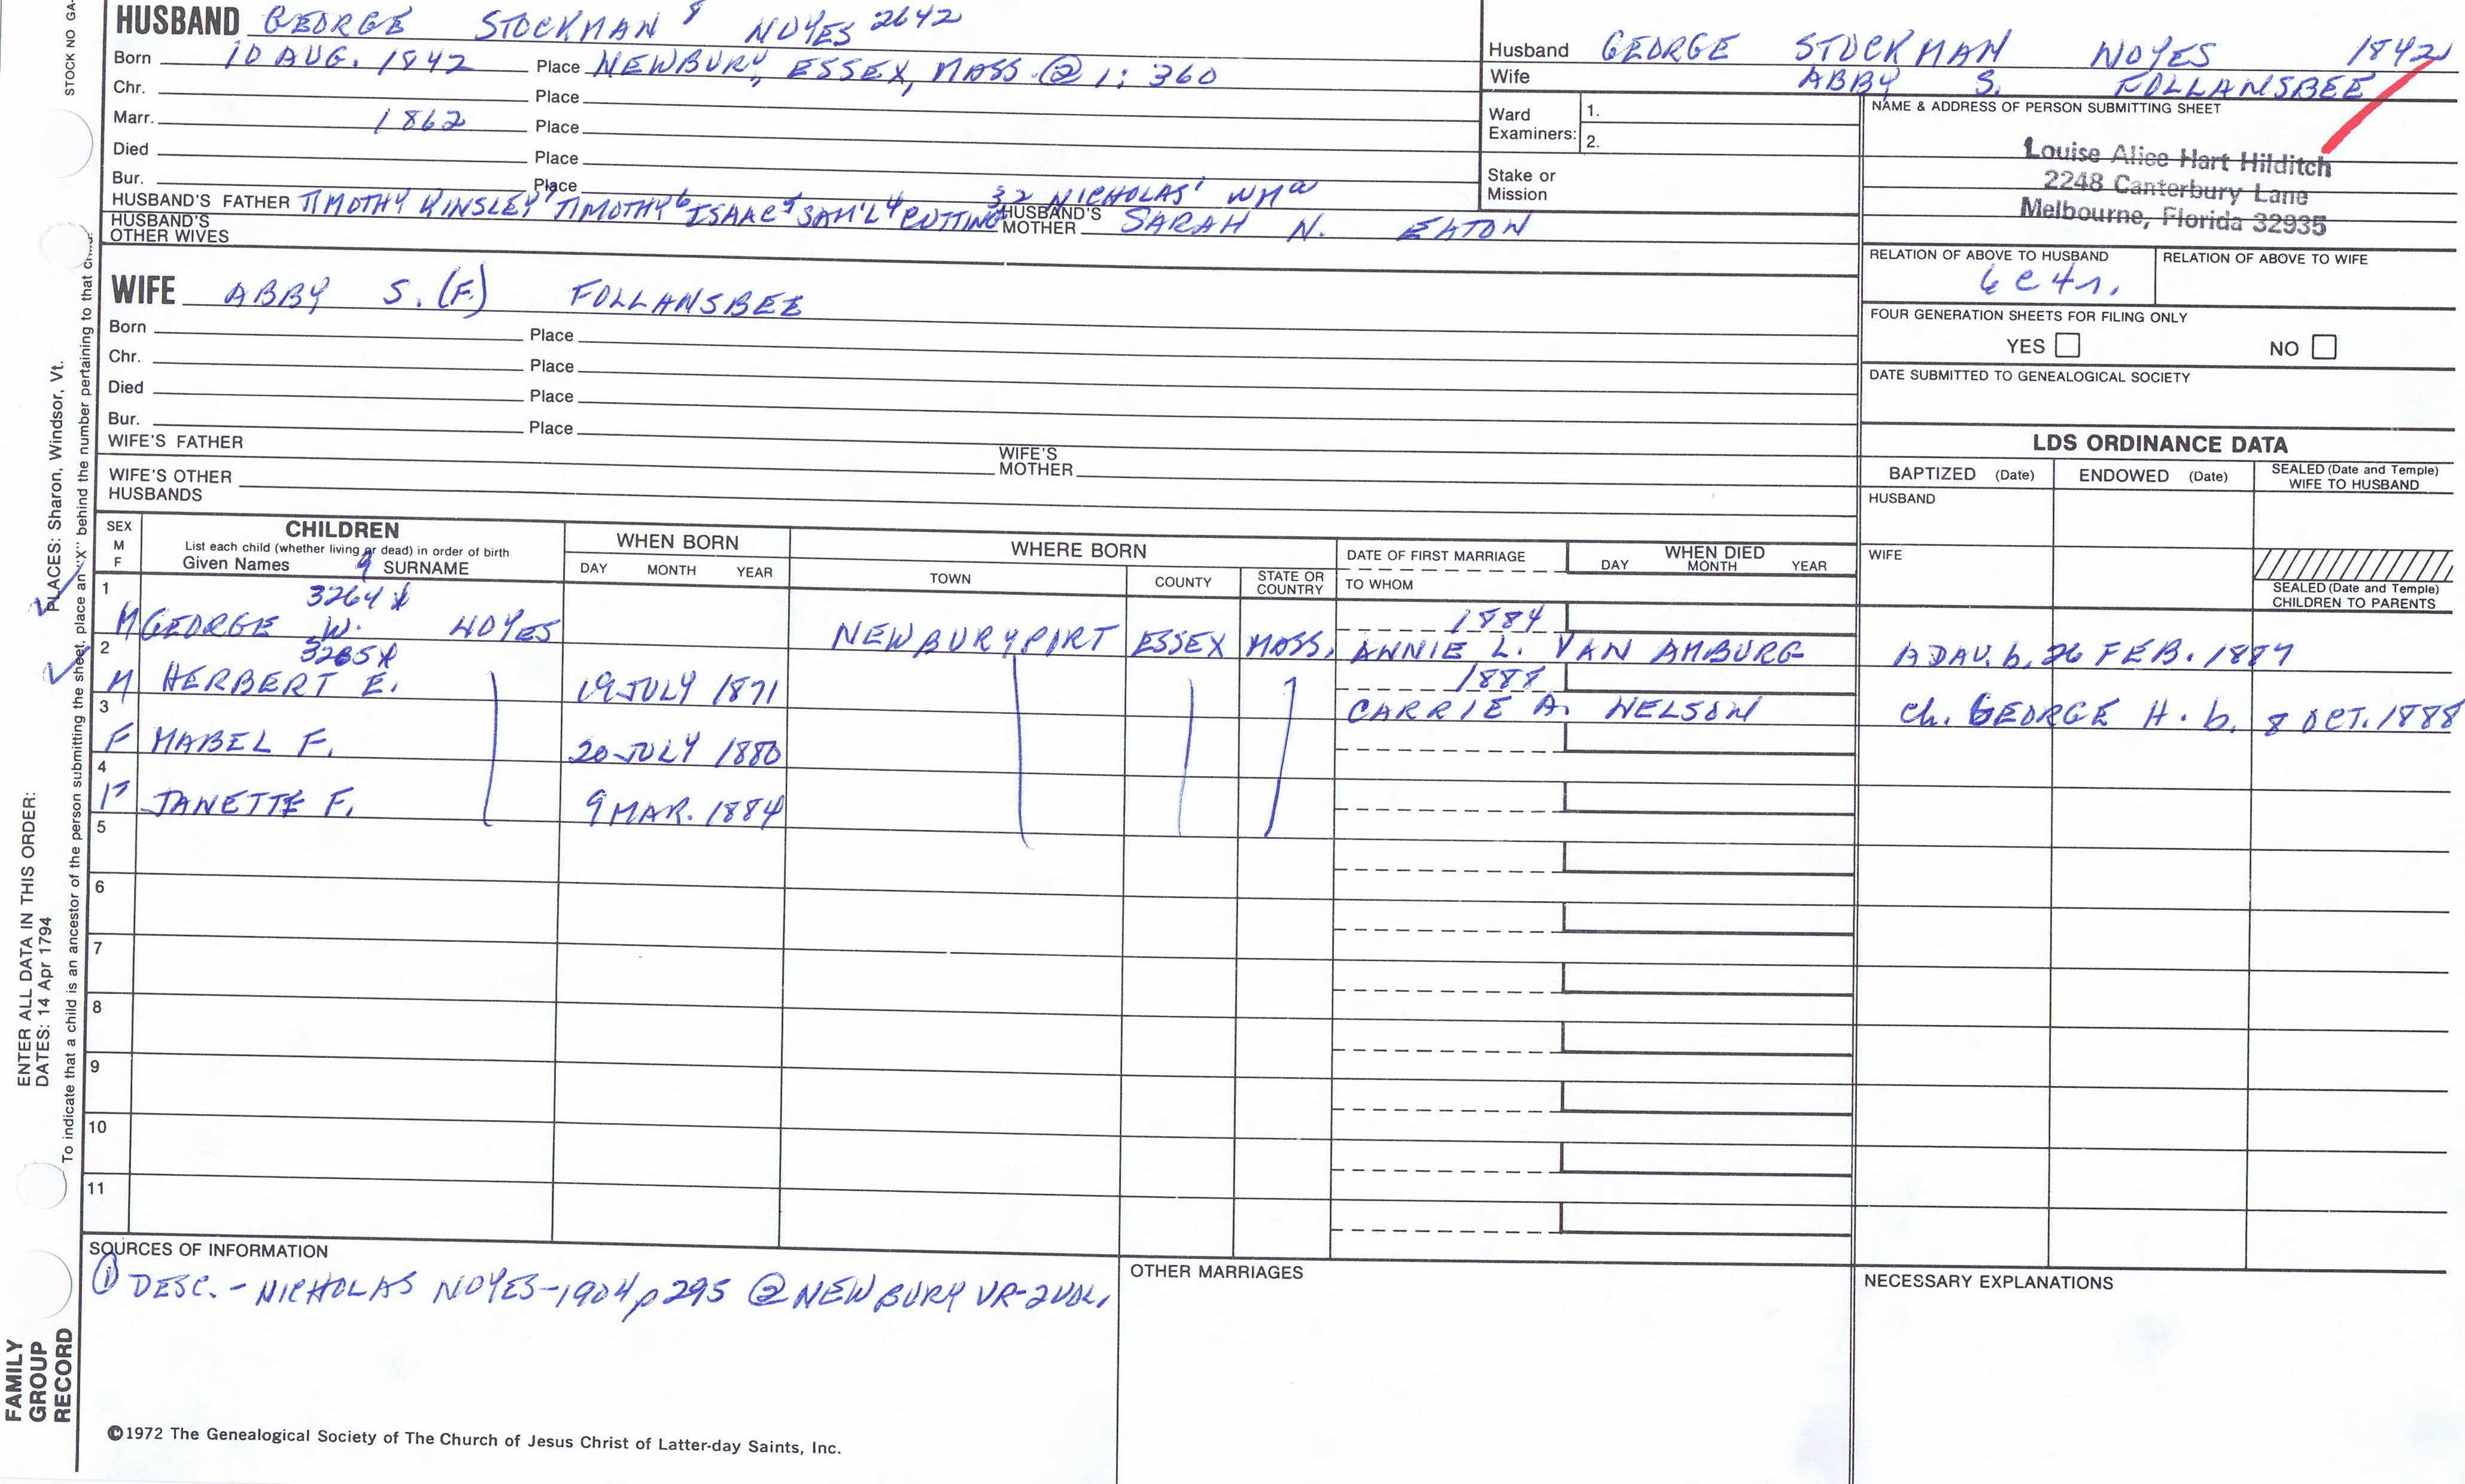 STOCK NO GA-
HUSBAND GEORGE STOCKMAN 8 NOYES 2642
Born 10 AUG. 1842 Place NEWBURY, ESSEX, MASS @ 1: 360
Chr. Place
Marr. 1862 Place
Died Place
Bur. Place
HUSBAND'S FATHER TIMOTHY KINSLEY7 TIMOTHY6 ISAAC5 SAM'L4 CUTTING 3 2 NICHOLAS1 WMa
HUSBAND'S MOTHER SARAH N. EATON
HUSBAND'S OTHER WIVES
WIFE ABBY S. (F.) FOLLANSBEE
Born Place
Chr. Place
Died Place
Bur. Place
WIFE'S FATHER
WIFE'S MOTHER
WIFE'S OTHER HUSBANDS
Husband GEORGE STOCKMAN NOYES 1842
Wife ABBY S. FOLLANSBEE
Ward Examiners: 1.
2.
Stake or Mission
NAME & ADDRESS OF PERSON SUBMITTING SHEET
Louise Alice Hart Hilditch
2248 Canterbury Lane
Melbourne, Florida 32935
RELATION OF ABOVE TO HUSBAND
6c4r.
RELATION OF ABOVE TO WIFE
FOUR GENERATION SHEETS FOR FILING ONLY
YES NO
DATE SUBMITTED TO GENEALOGICAL SOCIETY
LDS ORDINANCE DATA
BAPTIZED (Date) ENDOWED (Date) SEALED (Date and Temple) WIFE TO HUSBAND
HUSBAND
WIFE
SEALED (Date and Temple) CHILDREN TO PARENTS
SEX M F
CHILDREN
List each child (whether living or dead) in order of birth
Given Names 9 SURNAME
WHEN BORN
DAY MONTH YEAR
WHERE BORN
TOWN COUNTY STATE OR COUNTRY
DATE OF FIRST MARRIAGE
TO WHOM
WHEN DIED
DAY MONTH YEAR
1 3264 x 1884
M GEORGE W. NOYES NEWBURYPORT ESSEX MASS. ANNIE L. VAN AMBURG A DAU. b. 26 FEB. 1887
2 3265 x 1888
M HERBERT E. 19 JULY 1871 CARRIE A. NELSON ch. GEORGE H. b. 8 OCT. 1888
3
F MABEL F. 20 JULY 1880
4
F JANETTE F. 9 MAR. 1884
5
6
7
8
9
10
11
SOURCES OF INFORMATION
① DESC. - NICHOLAS NOYES-1904 p 295 ② NEWBURY VR-2VOL.
OTHER MARRIAGES
NECESSARY EXPLANATIONS
©1972 The Genealogical Society of The Church of Jesus Christ of Latter-day Saints, Inc.
FAMILY GROUP RECORD
ENTER ALL DATA IN THIS ORDER:
DATES: 14 Apr 1794
PLACES: Sharon, Windsor, Vt.
To indicate that a child is an ancestor of the person submitting the sheet, place an "X" behind the number pertaining to that